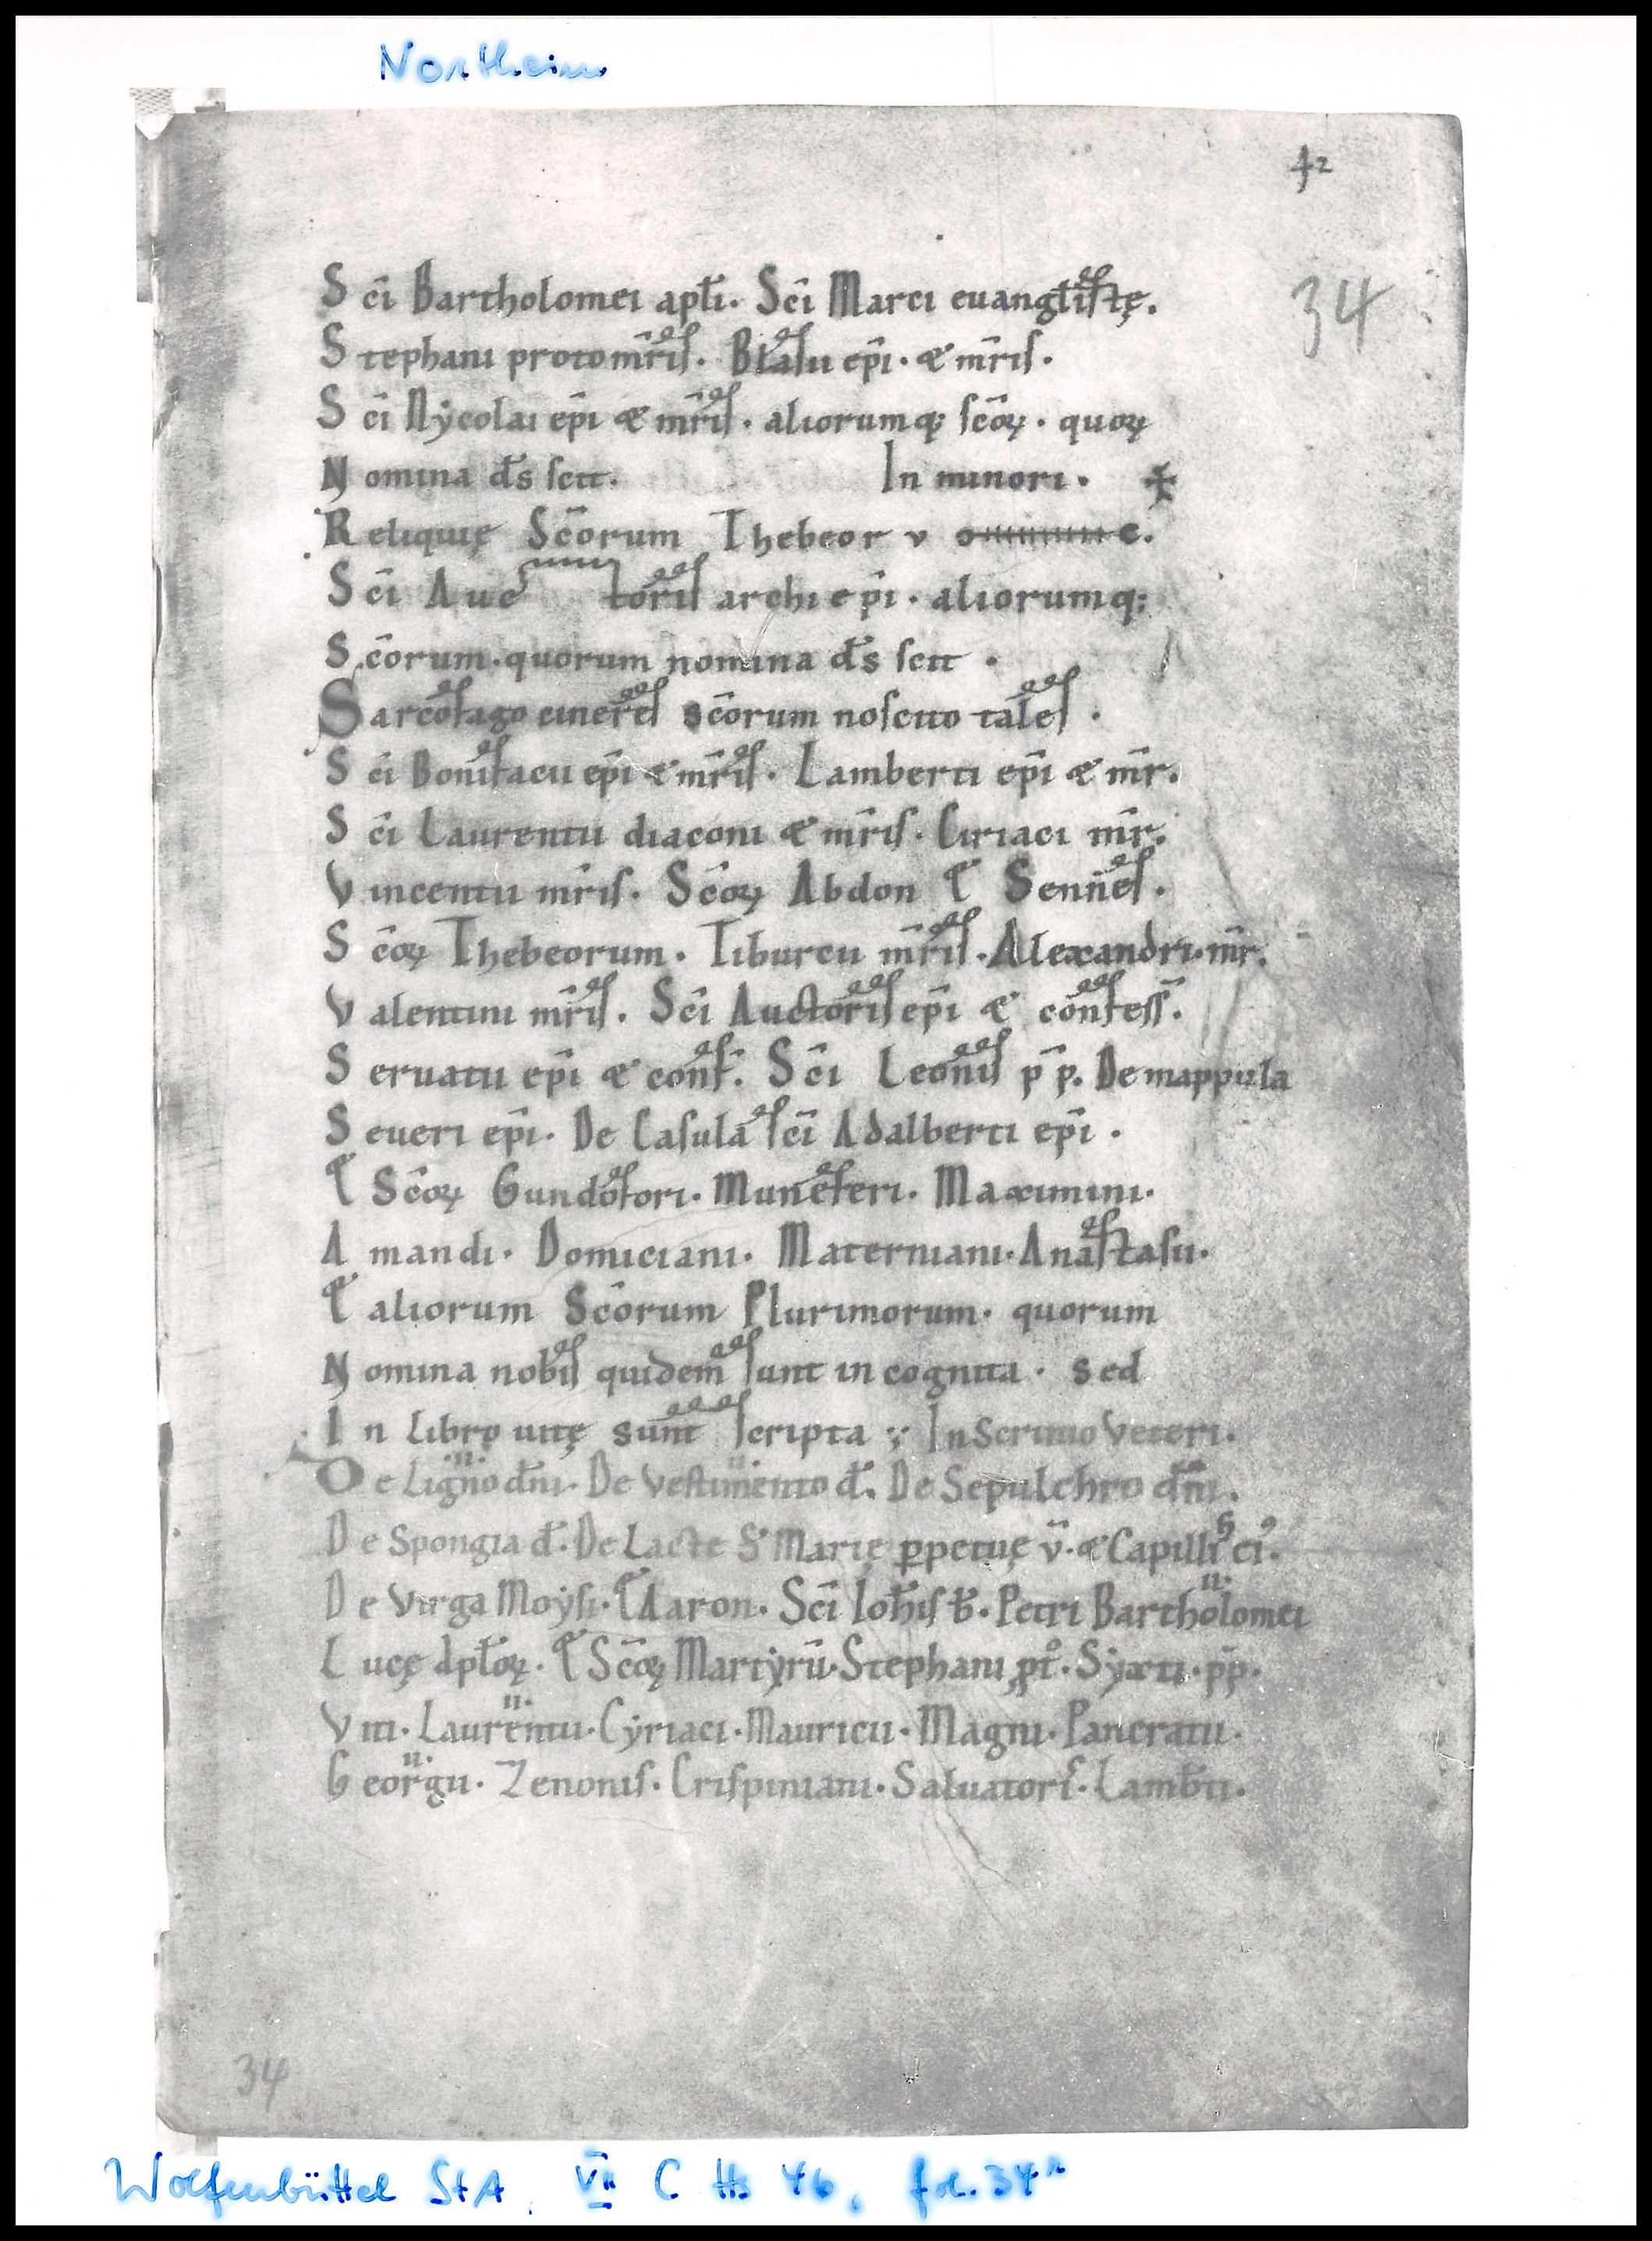 Northeim
42
34
S c̄i Bartholomei apłi. Sc̄i Marci euangłiſtę.
S tephani protomr̄iſ. Blaſii ep̄i. & mr̄iſ.
S c̄i Nẏcolai ep̄i & mr̄iſ. aliorumq; ſc̄oꝝ. quoꝝ
N omina d̄s ſcit. In minori. +
R eliquię Sc̄orum Thebeor v
S c̄i Auc toriſ archi ep̄i. aliorumq;
S c̄orum. quorum nomina d̄s ſcit .
S arcofago cinereſ sc̄orum noſcito taleſ .
S c̄i Bonifacii ep̄i & mr̄iſ. Lamberti ep̄i & mr̄.
S c̄i Laurentii diaconi & mr̄iſ. Ciriaci mr̄.
V incentii mr̄iſ. Sc̄oꝝ Abdon & Senneſ.
S c̄oꝝ Thebeorum. Tiburcii mr̄iſ. Alexandri. mr̄.
V alentini mr̄iſ. Sc̄i Auctoriſ ep̄i & confeſſ̄.
S eruatii ep̄i & conf̄. Sc̄i Leoniſ p̄p. De mappula
S eueri ep̄i. De Caſula ſc̄i Adalberti ep̄i .
& Sc̄oꝝ Gundofori. Muneferi. Maximini.
A mandi. Domiciani. Materniani. Anaſtaſii.
& aliorum Sc̄orum Plurimorum. quorum
N omina nobiſ quidem ſunt in cognita . sed
I n Libro uitę sunt ſcripta ; In Scrinio Veteri.
D e Ligno dn̄i. De Veſtimento d̄. De Sepulchro dn̄i.
D e Spongia d̄. De Lacte S Marię ꝑpetuę v̄. & Capilliſ eiꝰ.
D e Virga Moẏſi. & Aaron. Sc̄i Ioh̄iſ b̄. Petri Bartholomei
L ucę apłoꝝ. & Sc̄oꝝ Martẏrū. Stephani ꝓt̊. Sẏxti. p̄p.
V iti. Laurentii. Cẏriaci. Mauricii. Magni. Pancratii.
G eorgii. Zenoniſ. Criſpiniani. Saluatorſ. Lamb̄ti.
34
Wolfenbüttel StA, VII C Hs 46, fol. 34r